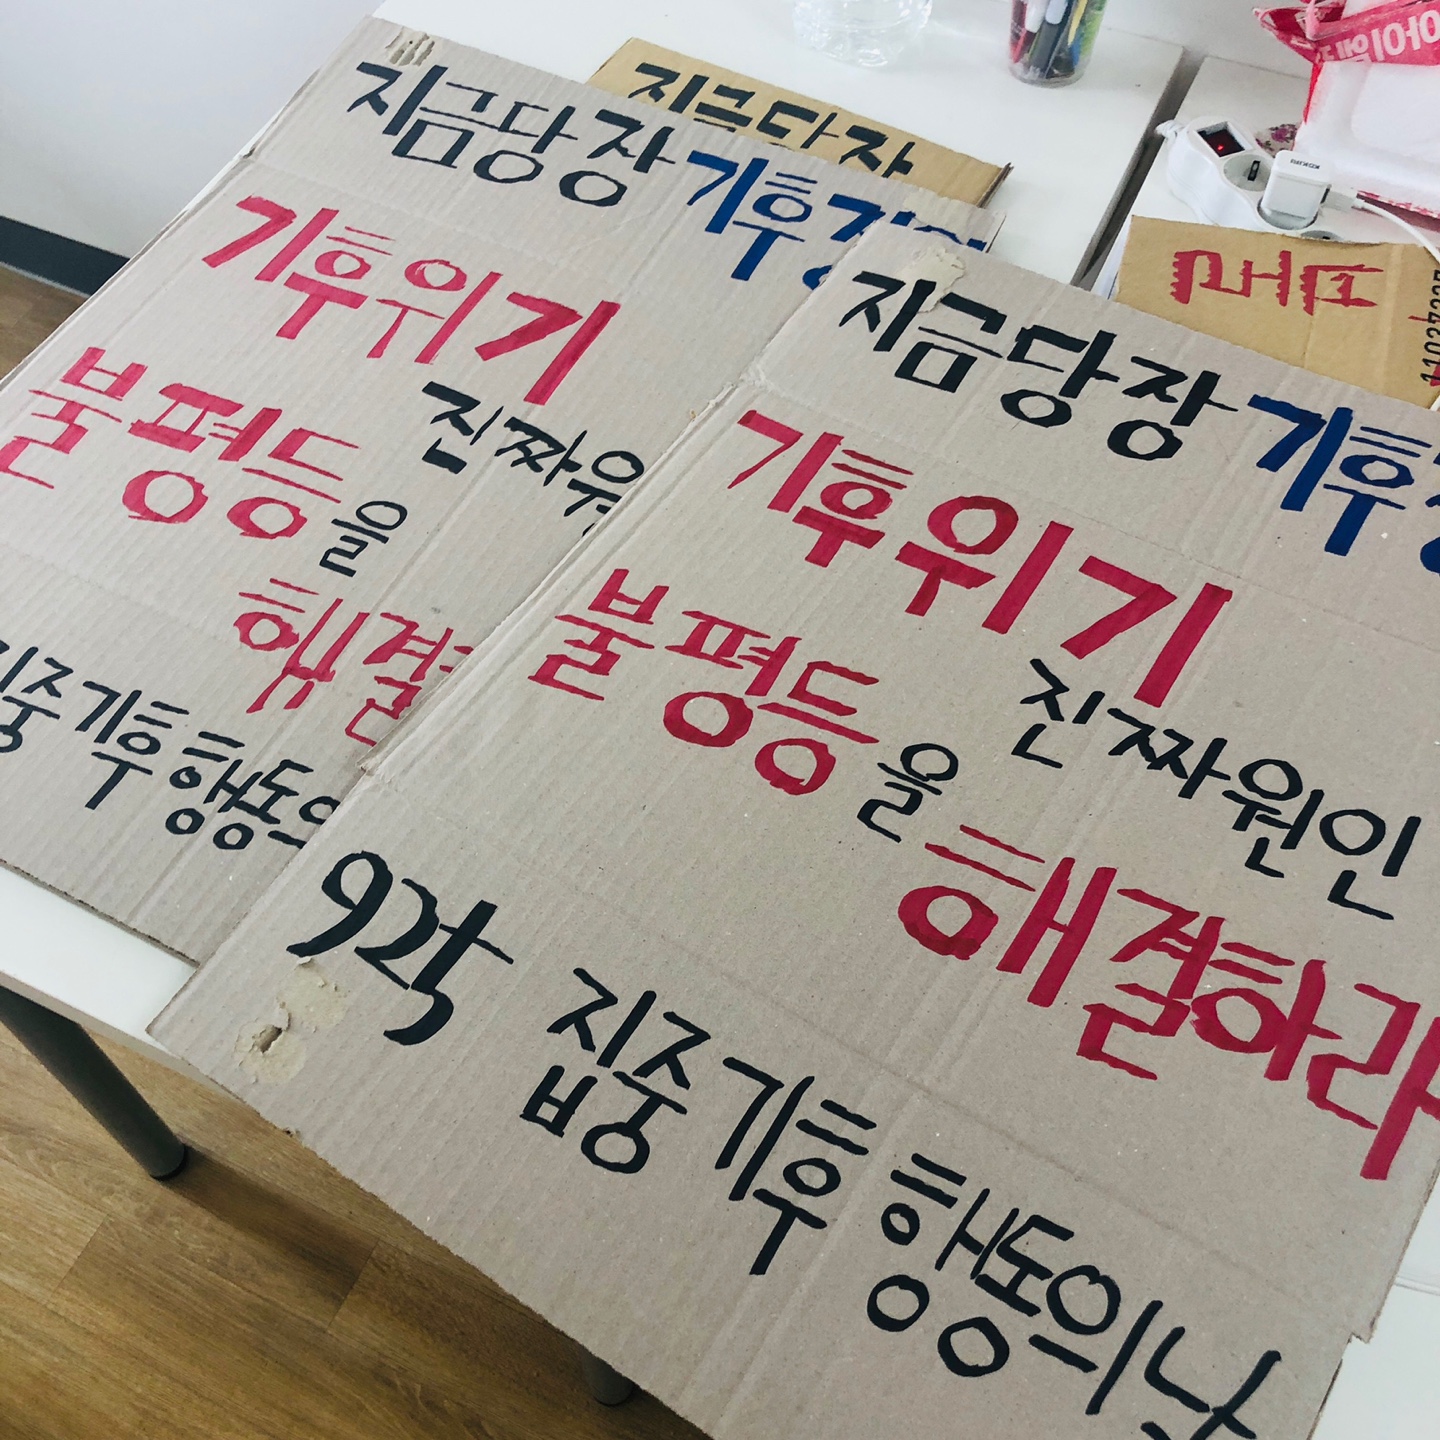 지금당장
지금당장 기후정의
기후위기
진짜원
불평등을
해결
집중기후행동의
지금당장 기후
기후위기
진짜원인
불평등을
해결하라
925 집중기후행동의날
11037227
아이